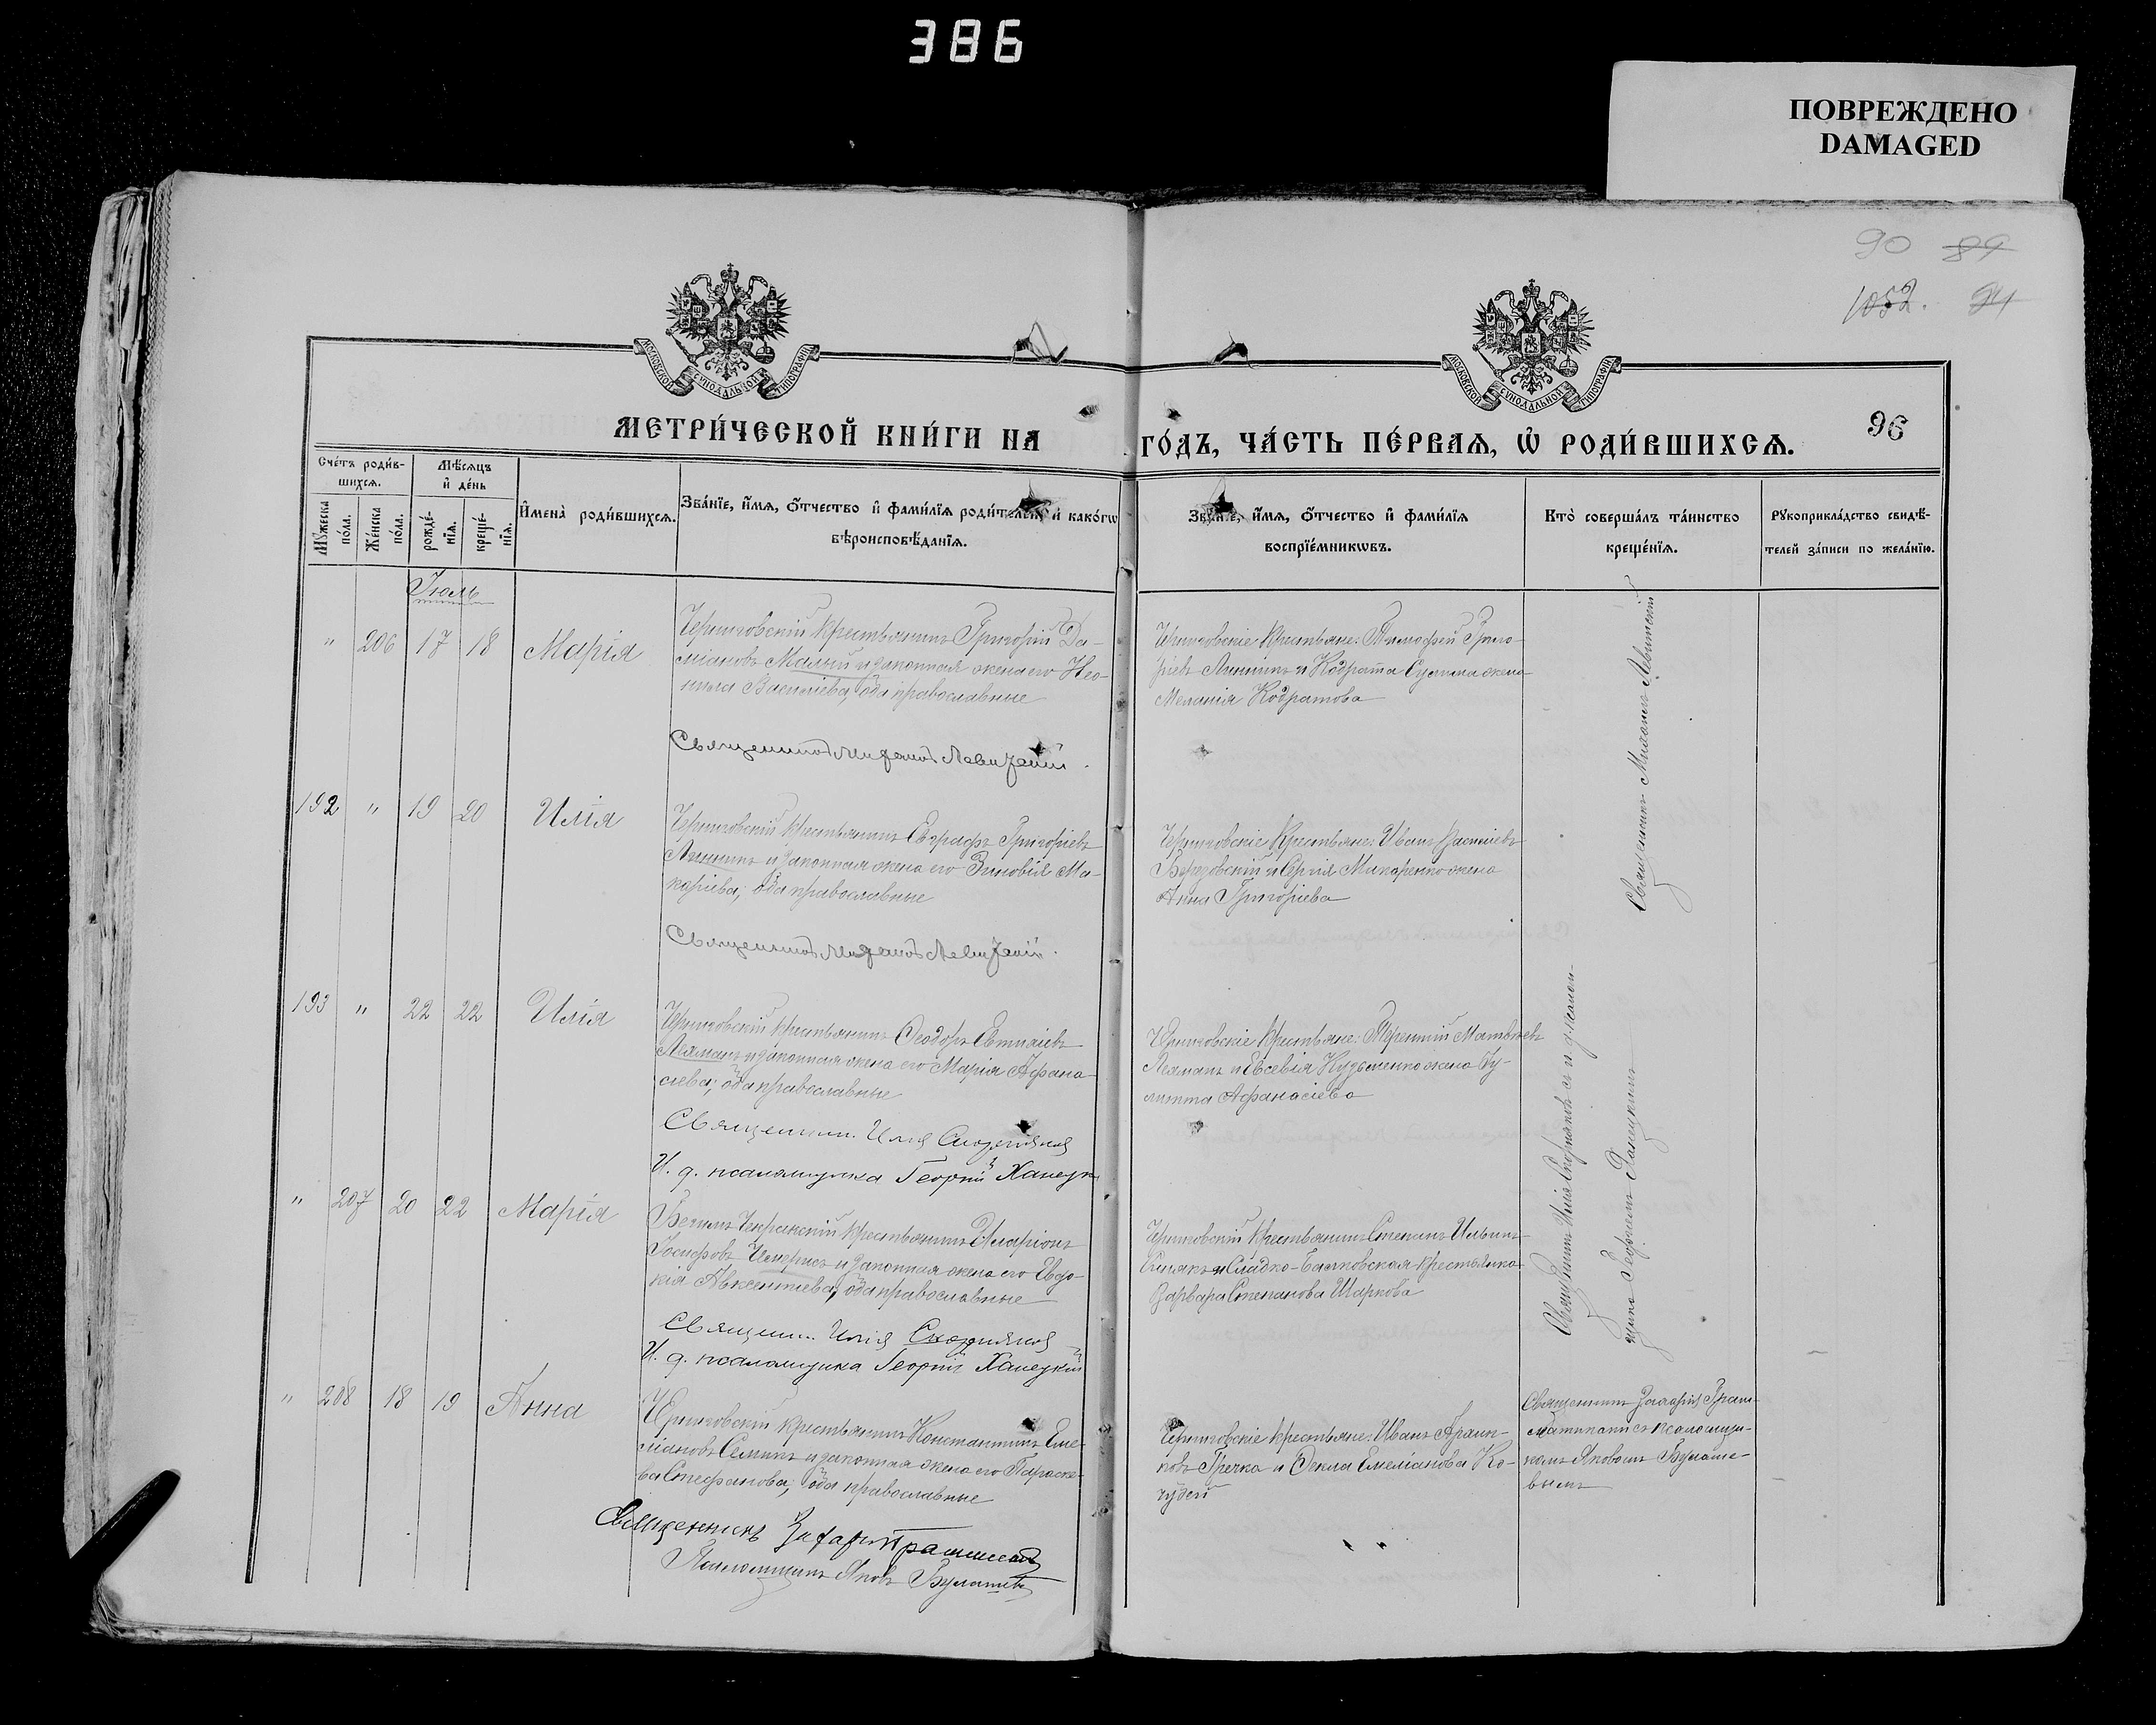 386
ПОВРЕЖДЕНО
DAMAGED
90 89
1052. 94
МОСКОВСКОЙ СУНОДАЛЬНОЙ ТИПОГРАФІИ
МОСКОВСКОЙ СУНОДАЛЬНОЙ ТИПОГРАФІИ
96
МЕТРИ́ЧЕСКОЙ КНИ́ГИ НА ГО́ДЪ, ЧА́СТЬ ПЕ́РВАЯ, Ѿ РОДИ́ВШИХСЯ.
Сче́тъ роди́в-
шихся.
Мѣ́сяцъ
и҆ де́нь
Мꙋ́жеска
по́ла.
Же́нска
по́ла.
рожде́-
нїя.
креще́-
нїя.
И҆мена̀ роди́вшихся.
Зва́нїе, и҆́мя, ѻ҆́тчество и҆ фами́лїя роди́телей, и҆ како́гѡ
вѣроисповѣ́данїя.
Зва́нїе, и҆́мя, ѻ҆́тчество и҆ фами́лїя
воспрїе́мникѡвъ.
Кто̀ соверша́лъ та́инство
креще́нїя.
Рꙋкоприкла́дство свидѣ́-
телей за́писи по жела́нїю.
Іюль
" 206 17 18 Марія
Черниговскій крестьянинъ Григорій Да-
міановъ Малый и законная жена его Нео-
нила Васильева, оба православные
Священникъ Михаилъ Левитскій.
Черниговскіе крестьяне: Тимофей Григо-
ріевъ Линникъ и Кодрата Сулима жена
Меланія Кодратова
Священникъ Михаилъ Левитскій
192 " 19 20 Илія
Черниговскій крестьянинъ Евграфъ Григоріевъ
Линникъ и законная жена его Зиновія Ма-
каріева; оба православные
Священникъ Михаилъ Левитскій.
Черниговскіе крестьяне: Иванъ Васильевъ
и Сергія Макаренко жена
Анна Григоріева
193 " 22 22 Илія
Черниговскій крестьянинъ Ѳеодоръ
Лехманъ и законная жена его Марія Афана-
сіева; оба православные
Священник. Илія
И. д. псаломщика Георгій Ханецк
Черниговскіе крестьяне: Терентій Матвѣевъ
Лехманъ и Евсевія Кузьменко жена Іу-
литта Афанасіева
Священникъ Илія с и. д. псалом-
щика Георгіемъ Ханецкимъ
" 207 20 22 Марія
крестьянинъ Иларіонъ
Іосифовъ и законная жена его Евдо-
кія Авксентіева, оба православные
Священ. Илія
И. д. псаломщика Георгій Ханецкій
Черниговскій крестьянинъ Степанъ Ильинъ
и Сладко-Балковская крестьянка
Варвара Степанова Шаркова
" 208 18 19 Анна
Черниговскій крестьянинъ Константинъ Еме-
ліановъ Семикъ и законная жена его Параске-
ва Стефанова; оба православные
Священникъ Захарій
Псаломщикъ Яковъ Булашевъ
Черниговскіе крестьяне: Иванъ
Гречка и Ѳекла Емеліанова Ко-
чубей
Священникъ Захарій Грам-
матикати съ псаломщи-
комъ Яковомъ Булаше-
вымъ